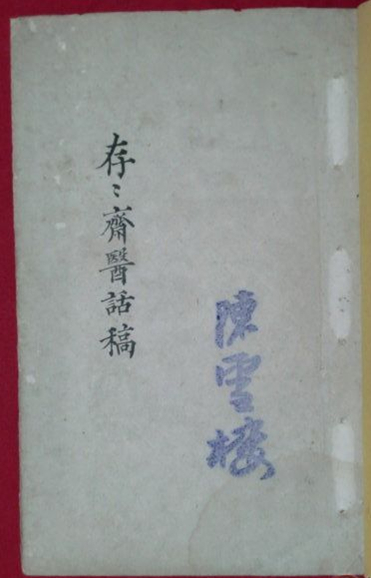 陳雲樓
存〻齋醫話稿